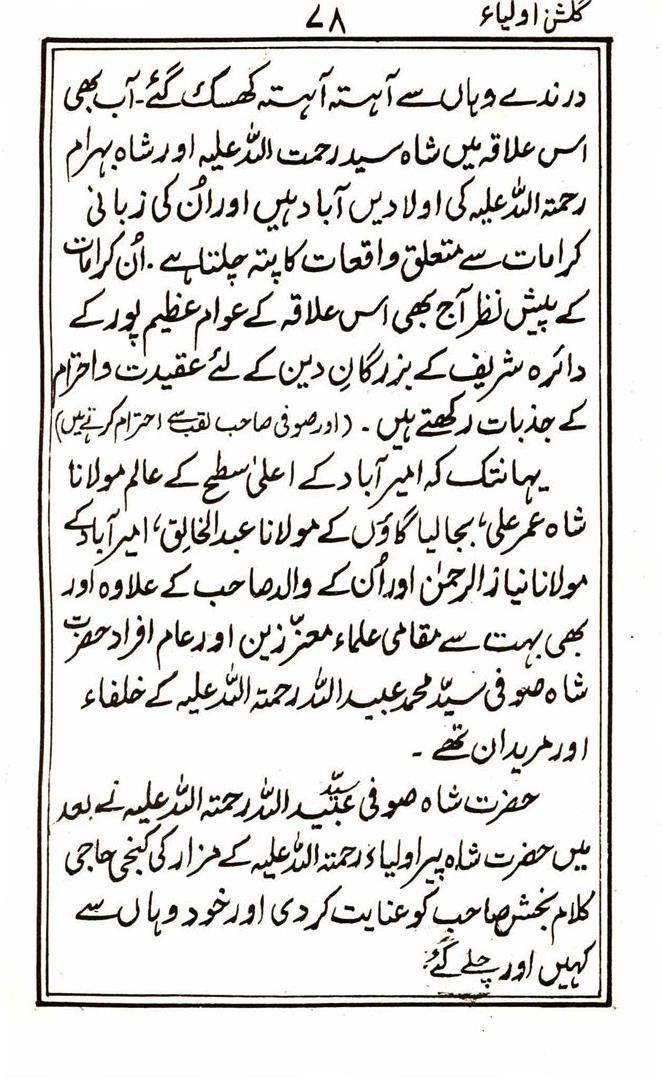 گلشنِ اولیاء
۷۸
درندے وہاں سے آہستہ آہستہ کھسک گئے۔ آب بھی
اس علاقہ میں شاہ سید رحمت اللہ علیہ اور شاہ بہرام
رحمتہ اللہ علیہ کی اولادیں آباد ہیں اور اُن کی زبانی
کرامات سے متعلق واقعات کا پتہ چلتا ہے۔ اُن کرامات
کے پیش نظر آج بھی اس علاقہ کے عوام عظیم پور کے
دائرہ شریف کے بزرگانِ دین کے لئے عقیدت واحترام
کے جذبات رکھتے ہیں۔ (اور صوفی صاحب لقب سے احترام کرتے ہیں)
یہانتک کہ امیر آباد کے اعلیٰ سطح کے عالم مولانا
شاہ عمر علی، بجالیا گاؤں کے مولانا عبدالخالق، امیر آباد کے
مولانا نیاز الرحمٰن اور اُن کے والد صاحب کے علاوہ اور
بھی بہت سے مقامی علماء معزّزین اور عام افراد حضرت
شاہ صوفی سیّد محمد عبید اللہ رحمتہ اللہ علیہ کے خلفاء
اور مریدان تھے۔
حضرت شاہ صوفی سیّد عبید اللہ رحمتہ اللہ علیہ نے بعد
میں حضرت شاہ پیر اولیاء رحمتہ اللہ علیہ کے مزار کی کنجی حاجی
کلام بخش صاحب کو عنایت کر دی اور خود وہاں سے
کہیں اور چلے گئے۔